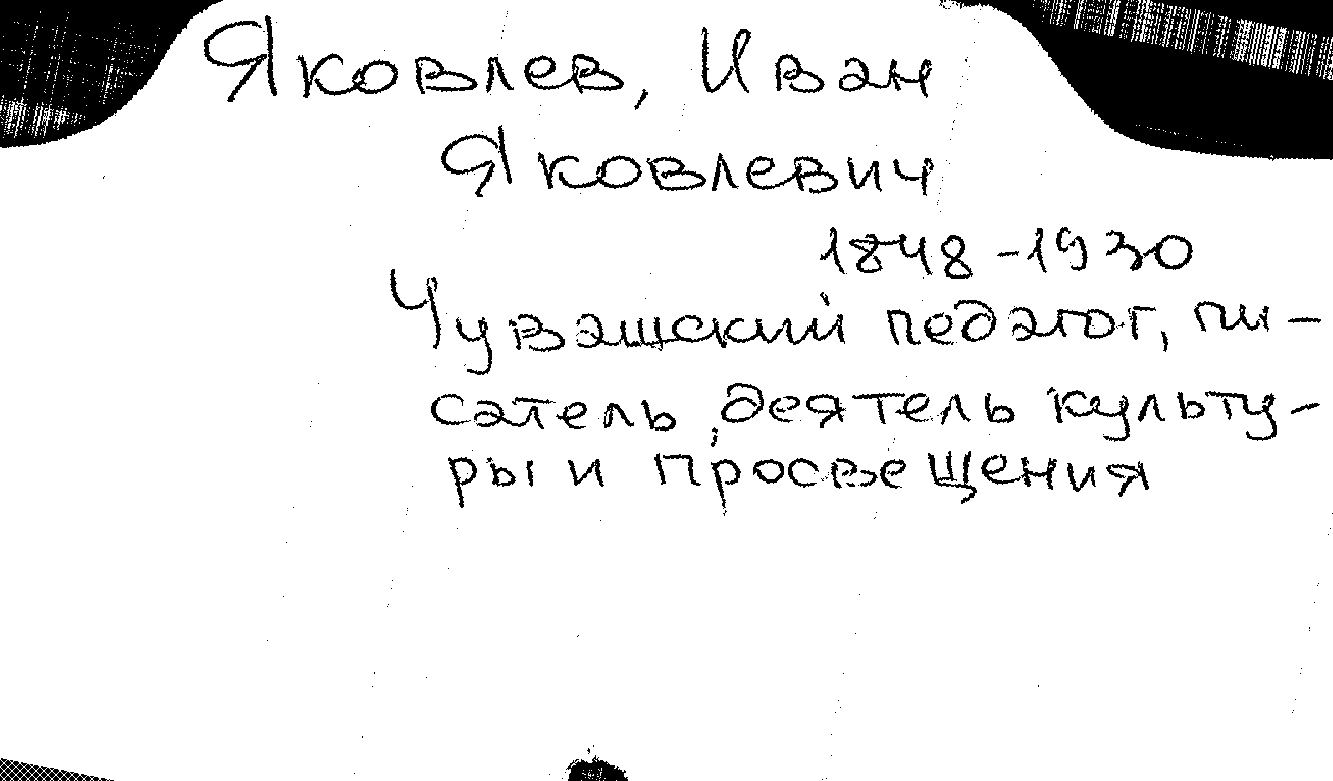 Яковлев, Иван
Яковлевич
1848-1930
Чувашский педагог, пи-
сатель, деятель культу-
ры и просвещения